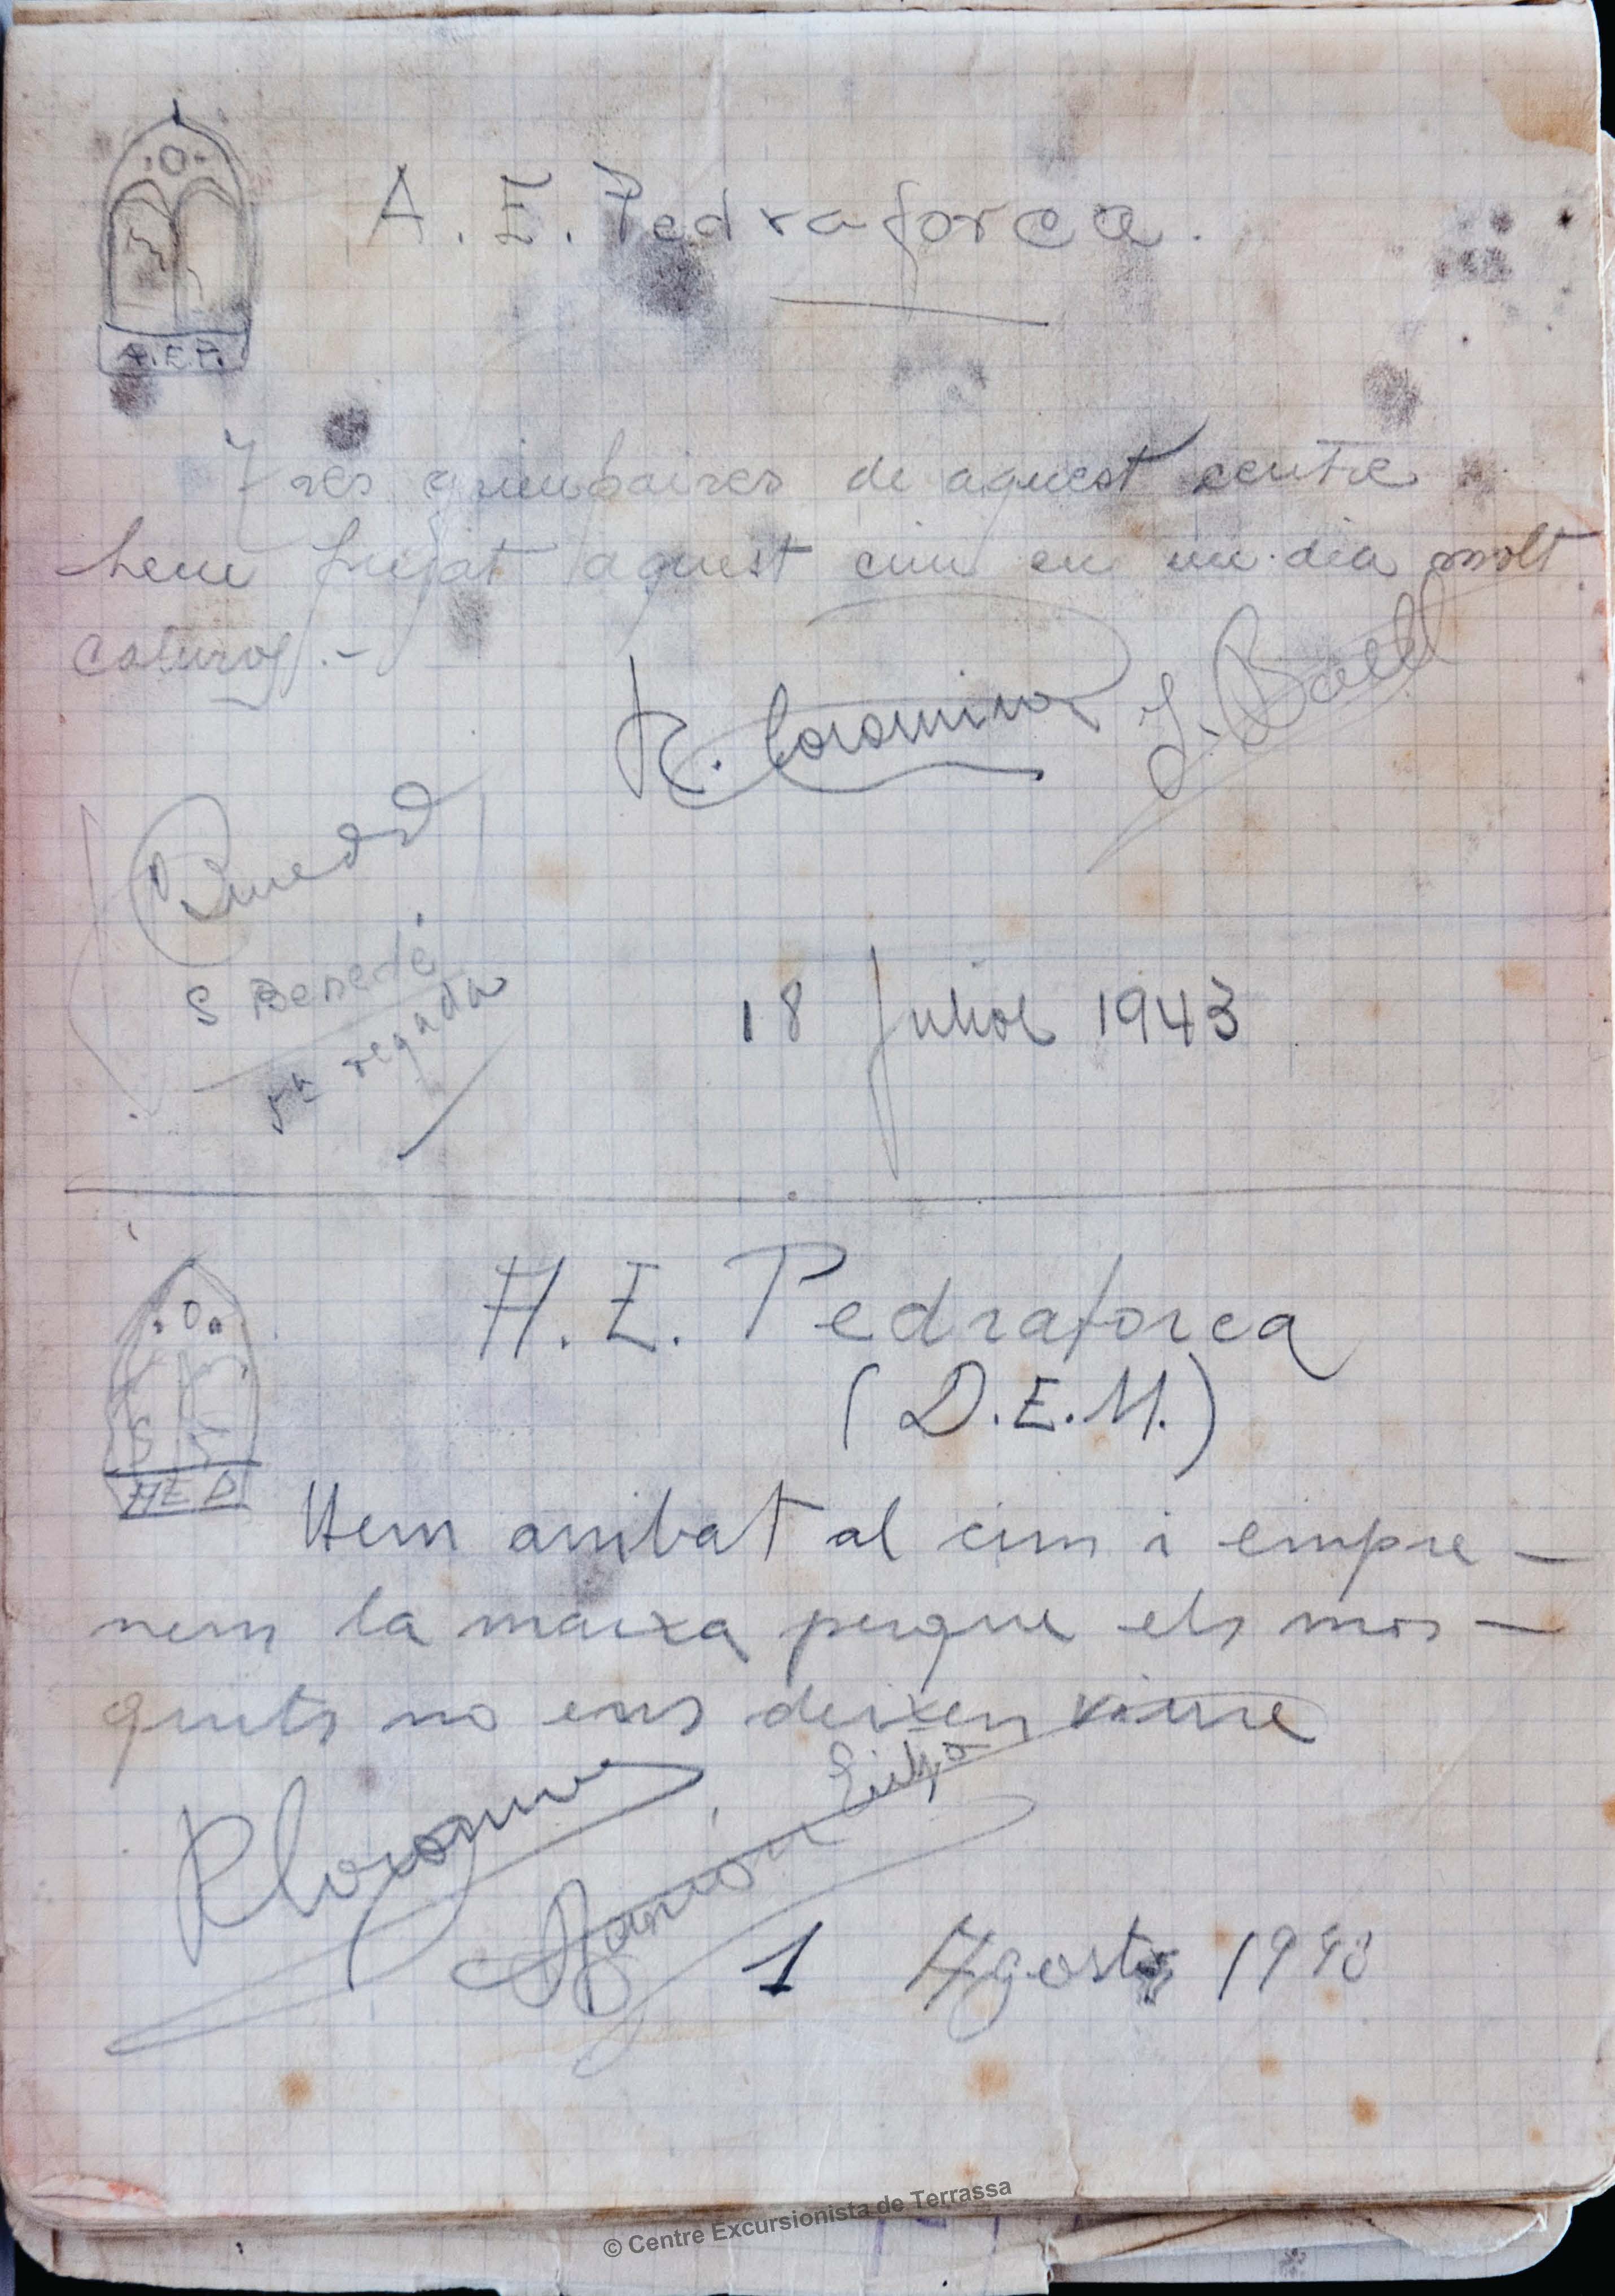 A. E. Pedraforca.
A.E.P.
Tres grimpaires de aquest centre
hem pujat aquest cim en un dia molt
caluros.-
R. Coromina J. Boell
S Benedé
5a vegada
18 Juliol 1943
A. E. Pedraforca
(D.E.M.)
A E P.
Hem arribat al cim i empre-
nem la marxa perque els mos-
quits no ens deixen viure
R Coromina
Ramón
1 Agost 1943
© Centre Excursionista de Terrassa